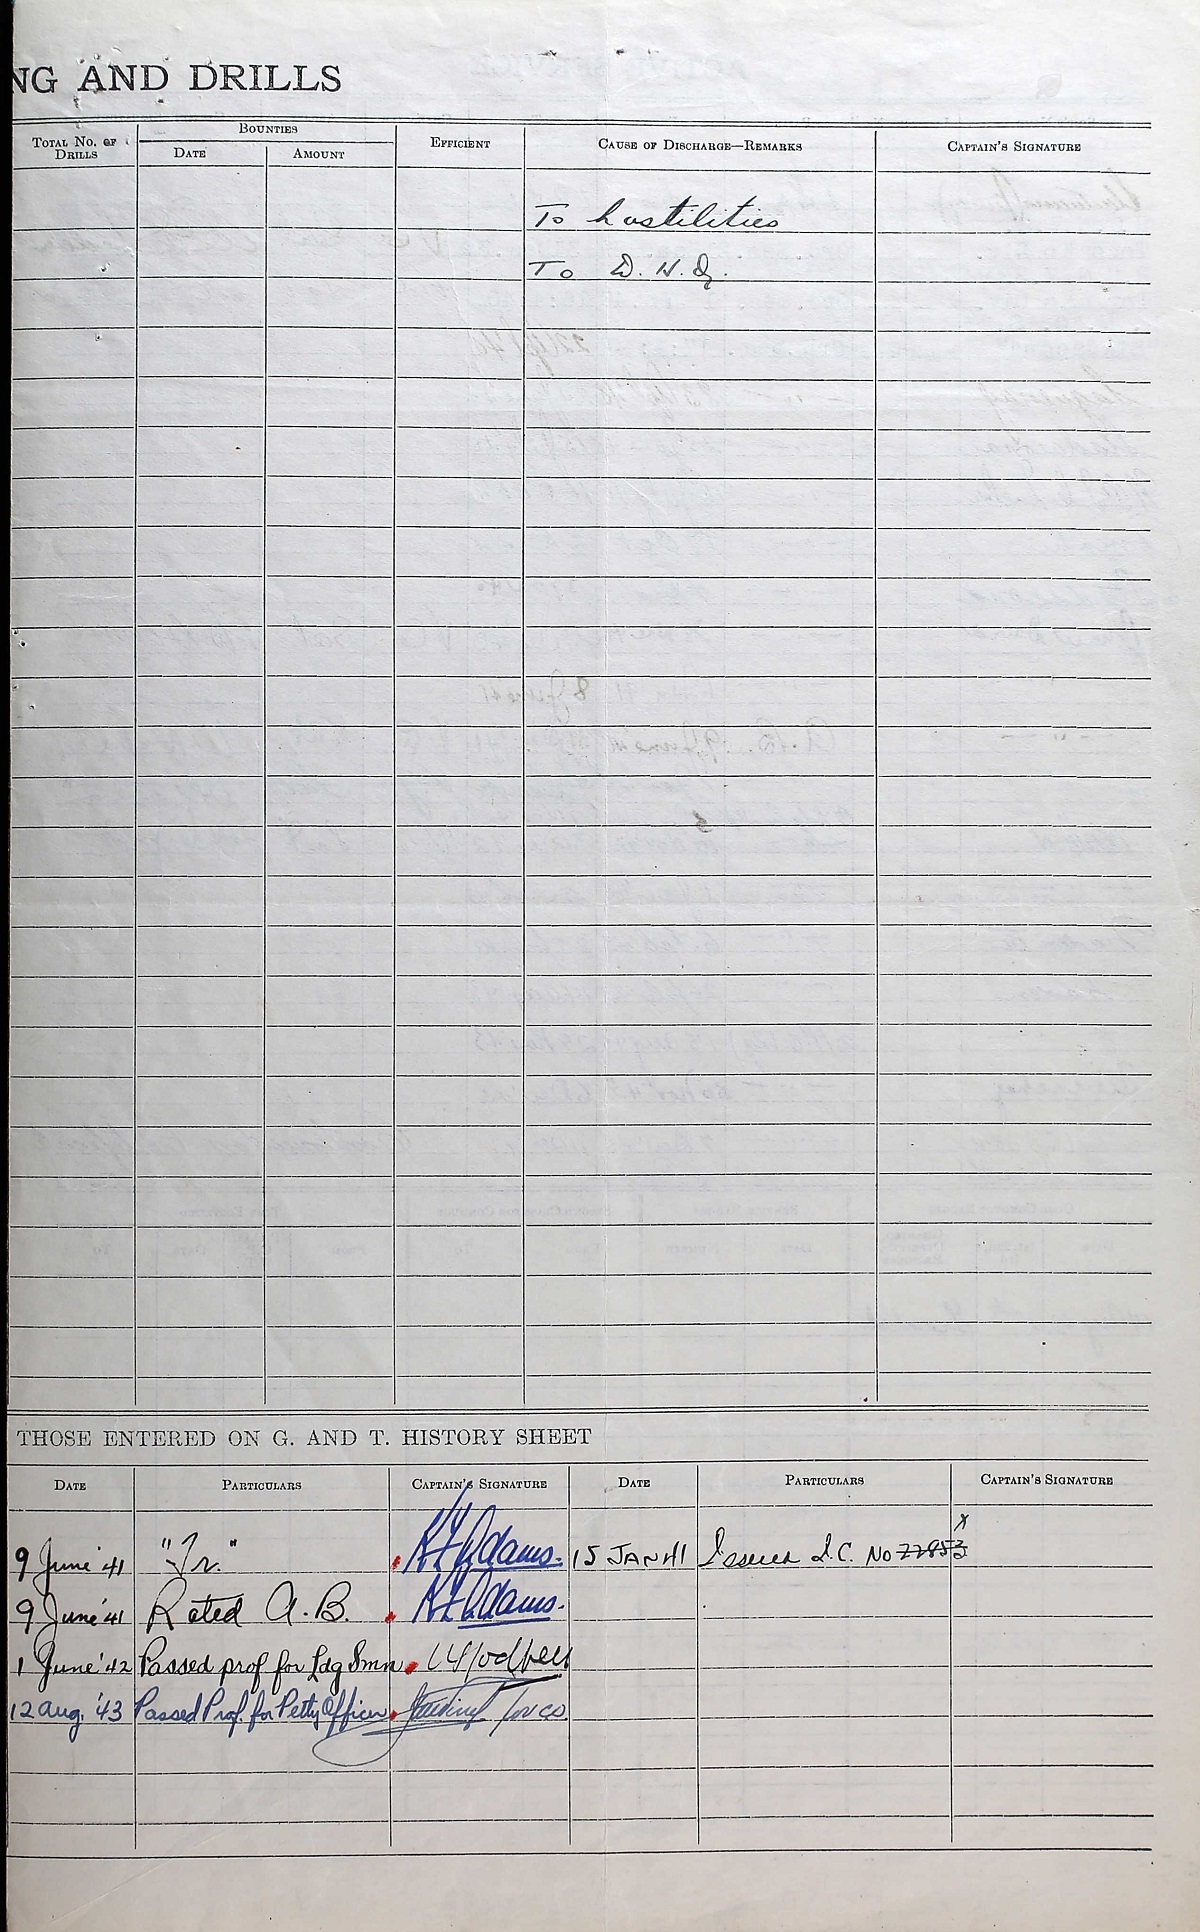 NG AND DRILLS
TOTAL NO. OF DRILLS BOUNTIES EFFICIENT CAUSE OF DISCHARGE—REMARKS CAPTAIN'S SIGNATURE
DATE AMOUNT
To hostilities
To D.H.Q.
THOSE ENTERED ON G. AND T. HISTORY SHEET
DATE PARTICULARS CAPTAIN'S SIGNATURE DATE PARTICULARS CAPTAIN'S SIGNATURE
9 June '41 "Tr." K F Adams. 15 JAN 41 Issued I.C. No 77853 x
9 June '41 Rated A.B. K F Adams.
1 June '42 Passed prof for Ldg Smn
12 Aug. '43 Passed Prof. for Petty Officer for CO